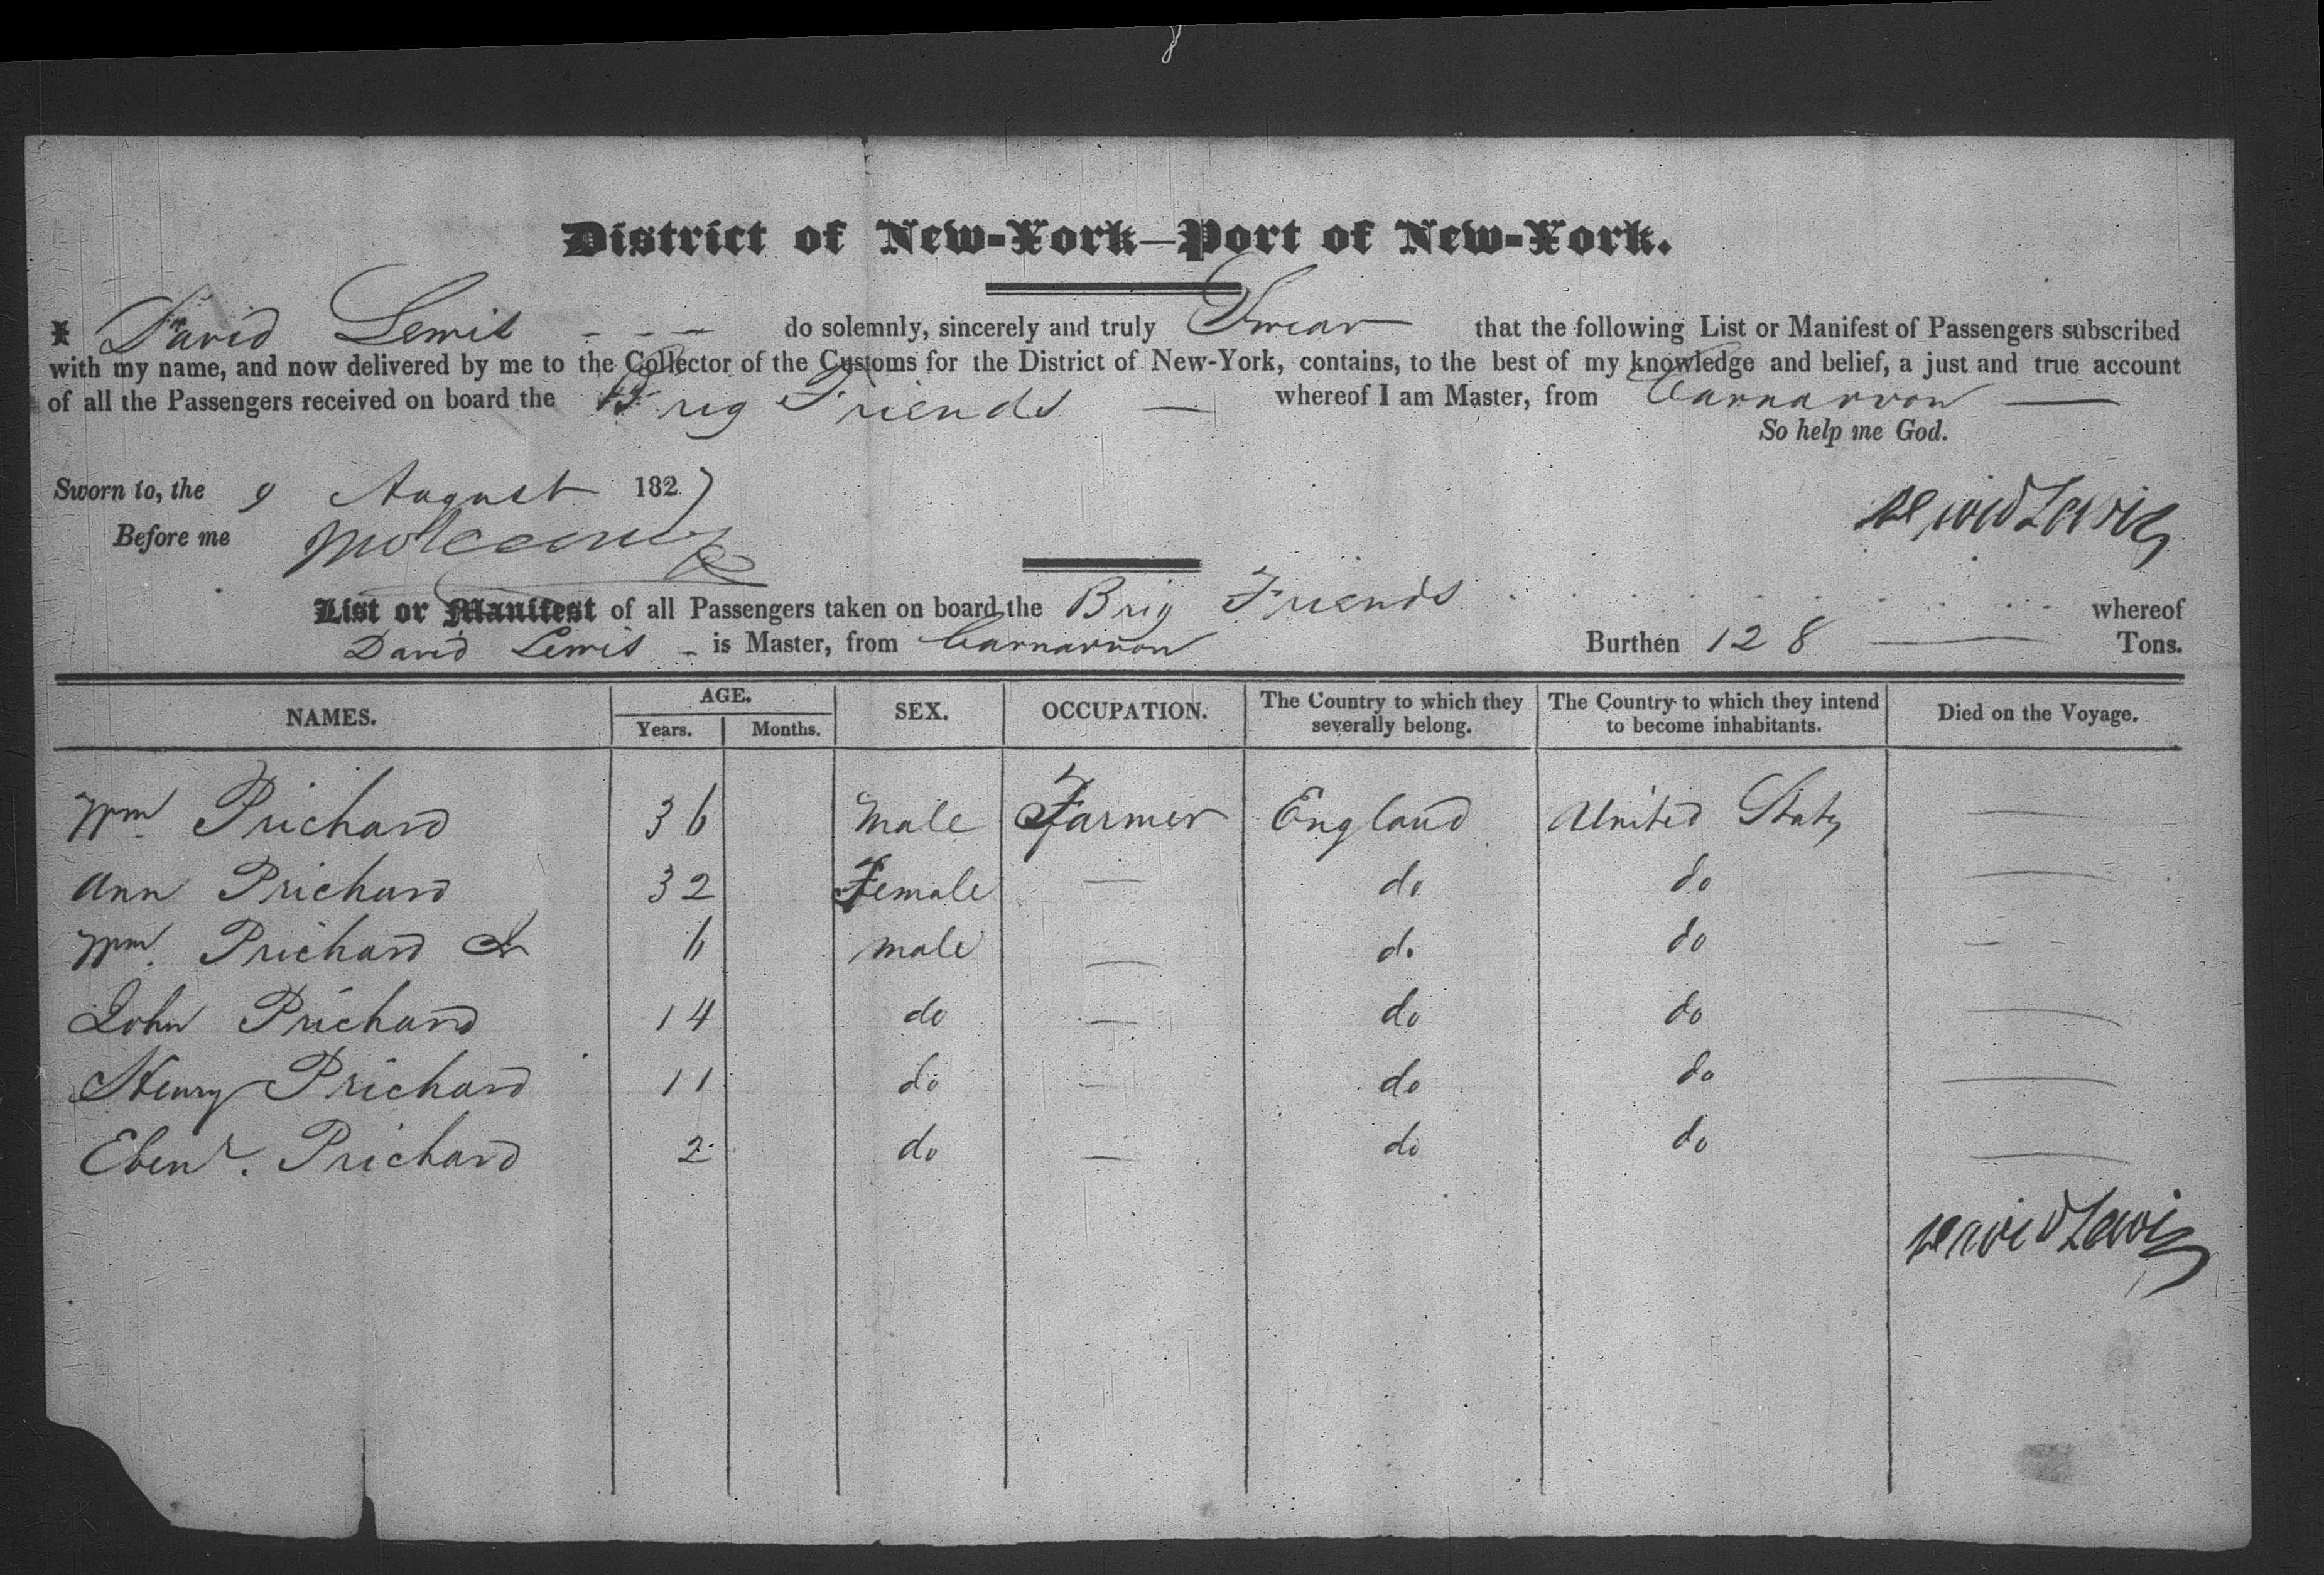 District of New-York—Port of New-York.
I David Lewis - - - do solemnly, sincerely and truly Swear that the following List or Manifest of Passengers subscribed
with my name, and now delivered by me to the Collector of the Customs for the District of New-York, contains, to the best of my knowledge and belief, a just and true account
of all the Passengers received on board the Brig Friends — whereof I am Master, from Carnarvon —
So help me God.
Sworn to, the 9 August 1827
Before me
David Lewis
List or Manifest of all Passengers taken on board the Brig Friends whereof
David Lewis - is Master, from Carnarvon Burthen 128 — Tons.
NAMES. AGE. Years. Months. SEX. OCCUPATION. The Country to which they severally belong. The Country to which they intend to become inhabitants. Died on the Voyage.
Wm Prichard 36 Male Farmer England United States —
Ann Prichard 32 Female — do do —
Wm. Prichard Jr 6 male — do do — -
John Prichard 14 do — do do —
Henry Prichard 11 do — do do —
Ebenr. Prichard 2 do — do do —
David Lewis